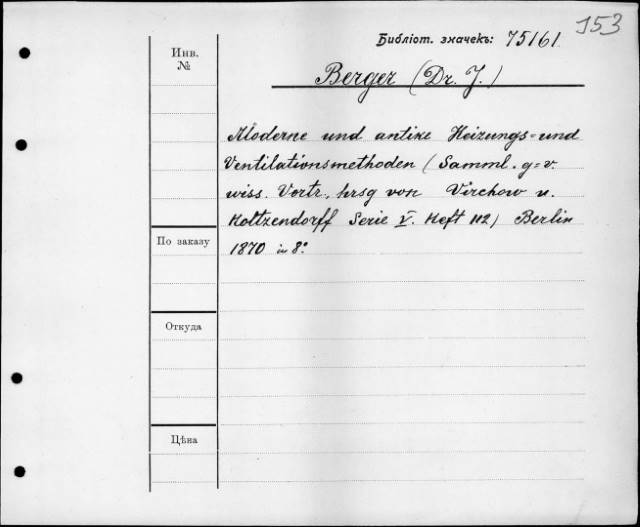 153
Библіот. значекъ: 75161.
Инв.
№
Berger (Dr. J.)
Moderne und antike Heizungs= und
Ventilationsmethoden (Samml. g=v.
wiss. Vortr., hrsg von Virchow u.
Holtzendorff Serie V. Heft 112) Berlin
1870 in 8°
По заказу
Откуда
Цѣна